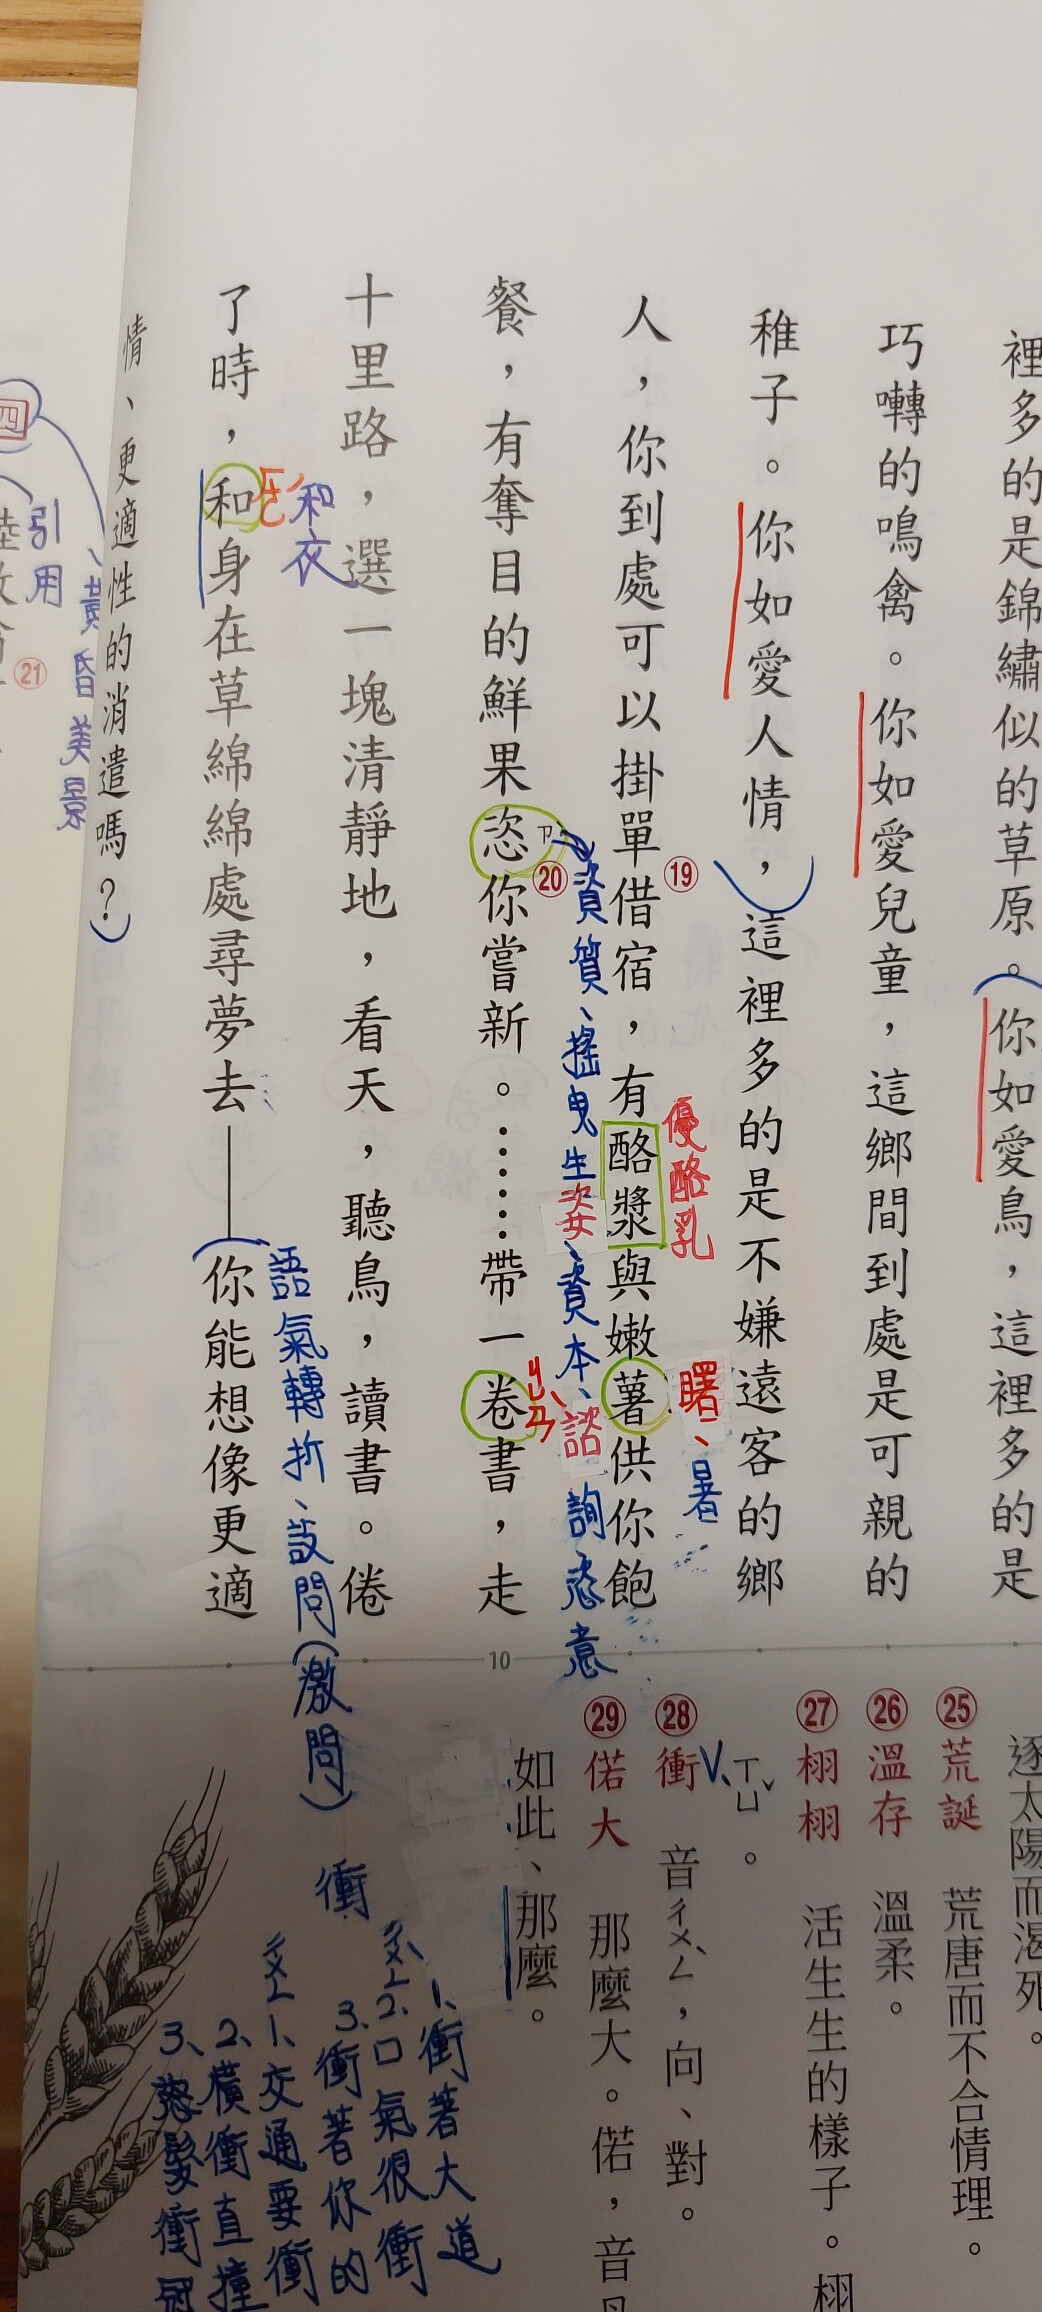 裡多的是錦繡似的草原。你如愛鳥，這裡多的是
巧囀的鳴禽。你如愛兒童，這鄉間到處是可親的
稚子。你如愛人情，這裡多的是不嫌遠客的鄉
人，你到處可以掛單⑲借宿，有酪漿與嫩薯供你飽
優酪乳
曙、暑
餐，有奪目的鮮果恣⑳你嘗新。……帶一卷書，走
ㄗˋ
資質、搖曳生姿、資本、諮詢恣意
ㄐㄩㄢˋ
十里路，選一塊清靜地，看天，聽鳥，讀書。倦
了時，和身在草綿綿處尋夢去——你能想像更適
ㄏㄜˊ
和衣
語氣轉折、設問(激問)
情、更適性的消遣嗎？
四
引用
黃昏美景
㉑
10
逐太陽而渴死。
㉕荒誕 荒唐而不合情理。
㉖溫存 溫柔。
㉗栩栩 活生生的樣子。栩
ㄒㄩˇ。
㉘衝 音ㄔㄨㄥˋ，向、對。
㉙偌大 那麼大。偌，音
如此、那麼。
衝
ㄔㄨㄥˋ
1、衝著大道
2、口氣很衝
3、衝著你的
ㄔㄨㄥ
1、交通要衝
2、橫衝直撞
3、怒髮衝冠